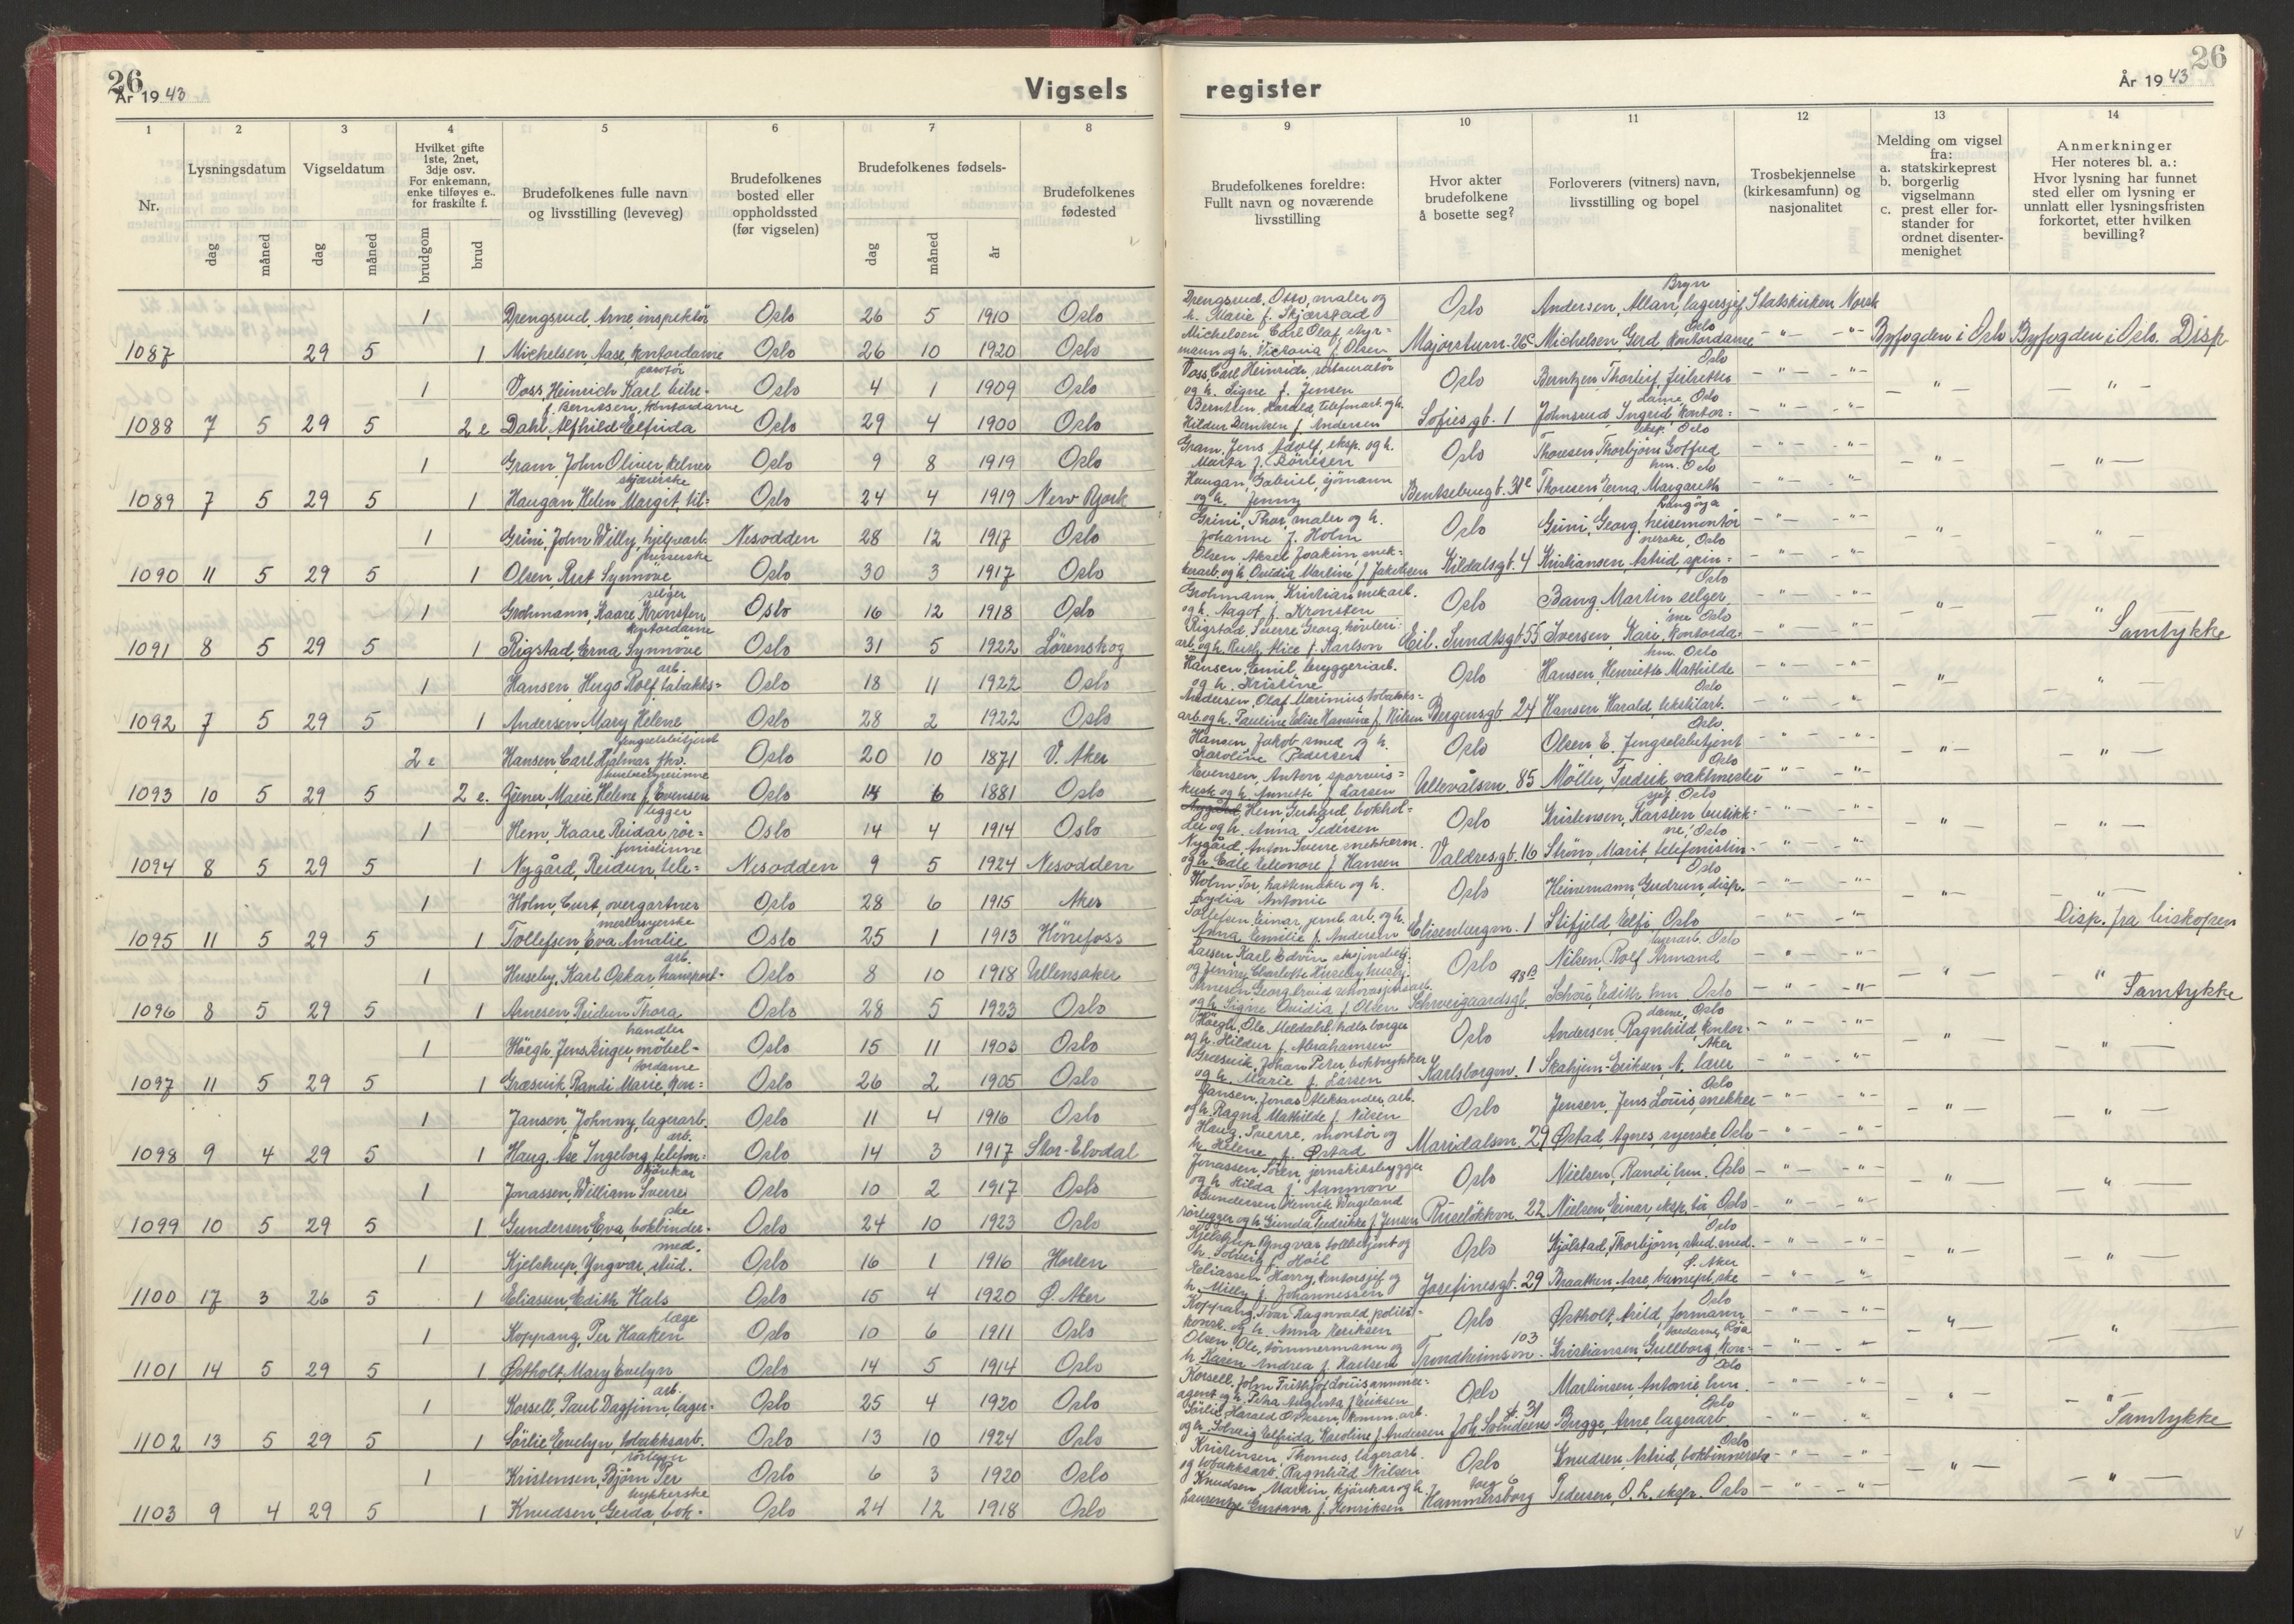 26
År 1943
Vigsels
1 2 3 4 5 6 7 8
Nr.
Lysningsdatum
Vigseldatum
Hvilket gifte
1ste, 2net,
3dje osv.
For enkemann,
enke tilføyes e..
for fraskilte f.
Brudefolkenes fulle navn
og livsstilling (leveveg)
Brudefolkenes
bosted eller
oppholdssted
(før vigselen)
Brudefolkenes fødsels-
Brudefolkenes
fødested
dag måned dag måned brudgom brud dag måned år
1 Drengsrud, Arne, inspektör Oslo 26 5 1910 Oslo
1087 29 5 1 Michelsen, Aase, kontordame Oslo 26 10 1920 Oslo
1 Voss, Heinrich Karl Oslo 4 1 1909 Oslo
f. Berntsen, kontordame
1088 7 5 29 5 2 e Dahl, Alfhild Elfrida Oslo 29 4 1900 Oslo
1 Gram, John Oliver kelner Oslo 9 8 1919 Oslo
skjærerske
1089 7 5 29 5 1 Haugan Helen Margit, til= Oslo 24 4 1919 New York
1 Grini, John Willy, hjelpearb. Nesodden 28 12 1917 Oslo
1090 11 5 29 5 1 Olsen, Synnöve Oslo 30 3 1917 Oslo
selger
1 Grohmann, Kaare Kronsten Oslo 16 12 1918 Oslo
kontordame
1091 8 5 29 5 1 Rigstad, Erna Synnöve Oslo 31 5 1922 Lörenskog
arb.
1 Hansen, Hugo Rolf, tobakks= Oslo 18 11 1922 Oslo
1092 7 5 29 5 1 Andersen, Mary Helene Oslo 28 2 1922 Oslo
fengselsbetjent
2 e Hansen, Carl Hjalmar, fhv. Oslo 20 10 1871 V. Aker
1093 10 5 29 5 2 e. Marie Helene f. Evensen Oslo 14 6 1881 Oslo
legger
1 Hem, Kaare Reidar, rör= Oslo 14 4 1914 Oslo
fonistinne
1094 8 5 29 5 1 Nygård, Reidun, tele= Nesodden 9 5 1924 Nesodden
1 Holm, Curt, overgartner Oslo 28 6 1915 Aker
1095 11 5 29 5 1 Tollefsen, Eva Amalie Oslo 25 1 1913 Hönefoss
arb.
1 Huseby, Karl Oskar, transport- Oslo 8 10 1918 Ullensaker
1096 8 5 29 5 1 Arnesen, Reidun Thora Oslo 28 5 1923 Oslo
handler
1 Höegh, Jens Birger, möbel- Oslo 15 11 1903 Oslo
tordame
1097 11 5 29 5 1 Græsvik, Randi Marie, kon= Oslo 26 2 1905 Oslo
1 Jansen, Johnny, lagerarb. Oslo 11 4 1916 Oslo
arb.
1098 9 4 29 5 1 Haug, Åse Ingeborg, telefon= Oslo 14 3 1917 Stor-Elvdal
kjörekar
1 Jonassen, William Sverre Oslo 10 2 1917 Oslo
ske
1099 10 5 29 5 1 Gundersen, Eva, bokbinder- Oslo 24 10 1923 Oslo
med.
1 Kjelstrup, Yngvar, stud. Oslo 16 1 1916 Horten
1100 17 3 26 5 1 Eliassen, Edith Hals Oslo 15 4 1920 Ø. Aker
læge
1 Koppang, Per Haaken Oslo 10 6 1911 Oslo
1101 14 5 29 5 1 Østholt, Mary Evelyn Oslo 14 5 1914 Oslo
arb.
1 Korsell, Paul Dagfinn, lager- Oslo 25 4 1920 Oslo
1102 13 5 29 5 1 Sörlie, Evelyn, tobakksarb. Oslo 13 10 1924 Oslo
1 Kristensen, Björn Per Oslo 6 3 1920 Oslo
trykkerske
1103 9 4 29 5 1 Knudsen, Gerda, bok- Oslo 24 12 1918 Oslo
26
register
År 1943
9 10 11 12 13 14
Brudefolkenes foreldre:
Fullt navn og noværende
livsstilling
Hvor akter
brudefolkene
å bosette seg?
Forloverers (vitners) navn,
livsstilling og bopel
Trosbekjennelse
(kirkesamfunn) og
nasjonalitet
Melding om vigsel
fra:
a. statskirkeprest
b. borgerlig
vigselmann
c. prest eller for-
stander for
ordnet disenter-
menighet
Anmerkninger
Her noteres bl. a.:
Hvor lysning har funnet
sted eller om lysning er
unnlatt eller lysningsfristen
forkortet, etter hvilken
bevilling?
Bryn
Drengsrud, Otto, maler og Oslo Andersen, Allan, lagersjef Statskirken Norsk
h. Marie f. Skjærstad
Michelsen, Carl Olaf, styr= Oslo
mann og h. Victoria f. Olsen Majorstuvn. 26c Michelsen, Gerd, kontordame Byfogden i Oslo Byfogden i Oslo. Disp
Voss, Carl Heinrich, restauratör Oslo
og h. Signe f. Jensen Oslo Berntzen Thorleif,
Berntsen, Harald, telefonarb. og h. dame, Oslo
Hildur Berntsen f. Andersen Sofiesgt. 1 Johnsrud, Ingrid, kontor=
Gram, Jens Adolf, eksp. og h. eksp. Oslo
Marta f. Oslo Thoresen, Thorbjörn Gotfred
Haugan, Gabriel, sjömann hm. Oslo
og h. Jenny Bentsebrugt. 31c Thoresen, Erna Margareth
Grini, Thor, maler og h. Langöya
Johanne f. Holm Oslo Grini, Georg, heisemontör
Olsen Aksel Joakim, mek= nerske, Oslo
kerarb. og h. Ovidia Marline f. Jakobsen Kildalsgt. 4 Kristiansen Astrid, spin=
Grohmann, Kristian, mekarb. Oslo
og h. Aagot f. Kronsten Oslo Bang, Martin, selger
Rigstad, Sverre Georg, me Oslo
arb. og h. Ruth Alice f. Karlson Eil. Sundtsgt 55 Iversen, Kari, kontorda= Samtykke
Hansen, Emil, bryggeriarb. hm. Oslo
og h. Kristine Oslo Hansen, Henriette Mathilde
Andersen, Olaf Marinius tobakks= Oslo
arb. og h. Pauline Elise Hansine f. Nilsen Bergensgt 24 Hansen Harald, tekstilarb.
Hansen, Jakob smed og h. Oslo
Karoline Pedersen Oslo Olsen, E. Fengselsbetjent
Evensen, Anton, sporveis= Oslo
kusk og h. Annette f. Larsen Ullevålsvn. 85 Möller, Fredrik, vaktmester
Hem, Gerhard, bokhol= sjef Oslo
der og h. Anna Pedersen Oslo Kristensen, Karsten butikk=
Nygård, Anton Sverre snekkerm. ne, Oslo
og h. Edle Eleonore f. Hansen Valdresgt. 16 Ström, Marit, telefonistin=
Holm, Tor, hattemaker og h. Oslo
Lydia Antonie Oslo Heinemann, Gudrun, disp.
Tollefsen, Einar, jernb. arb. og h.
Anna Emilie f. Andersen Elisenbergvn. 1 Stifjeld, Elfi, Oslo Disp. fra biskopen
Larsen Karl Edvin lagerarb. Oslo
og Jenny Charlotte Huseby Oslo Nilsen, Rolf Armand
Arnesen, Georg 98B
og h. Signe Ovidia f. Olsen Schweigaardsgt. Schou, Edith hm Oslo Samtykke
Höegh, Ole Meldahl, hdls.borger dame, Oslo
og h. Hildur f. Abrahamsen Oslo Andersen, Ragnhild, kontor-
Græsvik, Johan Peter, boktrykker Aker
og h. Marie f. Larsen Karlsborgvn. 1 Skahjem-Eriksen, A. lærer
Jansen, Jonas Aleksander, arb. Oslo
og h. Ragna Mathilde f. Nilsen Oslo Jensen, Jens Louis, snekker
Haug, Sverre, montör og
h. Helene f. Østad Maridalsvn. 29 Østad, Agnes, syerske, Oslo
Jonassen, Sören, jernskibsbygger
og h. Hilda f. Aanmon Oslo Nielsen, Randi, hm. Oslo
Gundersen Henrik Wergeland
rörlegger og h. Gunda Fredrikke f. Jensen Ruselökkvn. 22 Nielsen, Einar, eksp. Oslo
Kjelstrup, Yngvar, tollbetjent og Oslo
h. Solveig f. Hoel Oslo Kjölstad, Thorbjörn, stud. med.
Eliassen, Harry, kontorsjef og Ø. Aker
h. Milly f. Johannessen Josefinesgt. 29 Braathen, Aase, barnepl.ske
Koppang, Ivar Ragnvald, politi- Oslo
konst. og h. Anna Henriksen Oslo Østholt, Arild, formann
Olsen, Ole, tömmermann og 103 tordame, Röa
h. Karen Andrea f. Karlsen Trondheimsvn. Kristiansen, Gullborg, kon-
Korsell, John Frithjof Louis, annonse= Oslo
agent og h. Petra Augusta f. Eriksen Oslo Martinsen, Antonie, hm.
Sörlie, Harald Ottesen, komm. arb. 31 Oslo
og h. Solveig Elfrida Karoline f. Andersen Joh. Bugge, Arne, lagerarb. Samtykke
Kristensen, Thomas, lagerarb. Oslo
og tobakksarb. Ragnhild Nilsen Oslo Knudsen, Astrid, bokbinnerske
Knudsen, Martin, kjörekar og h. torg 6
Laurentze Gustava f. Henriksen Hammersborg Pedersen, O. L. Oslo